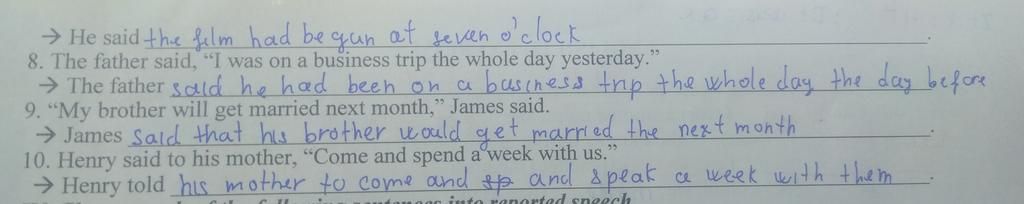 → He said the film had begun at seven o'clock.
8. The father said, “I was on a business trip the whole day yesterday.”
→ The father said he had been on a business trip the whole day the day before
9. “My brother will get married next month,” James said.
→ James said that his brother would get married the next month.
10. Henry said to his mother, “Come and spend a week with us.”
→ Henry told his mother to come and sp and speak a week with them.
of the following sentences into reported speech